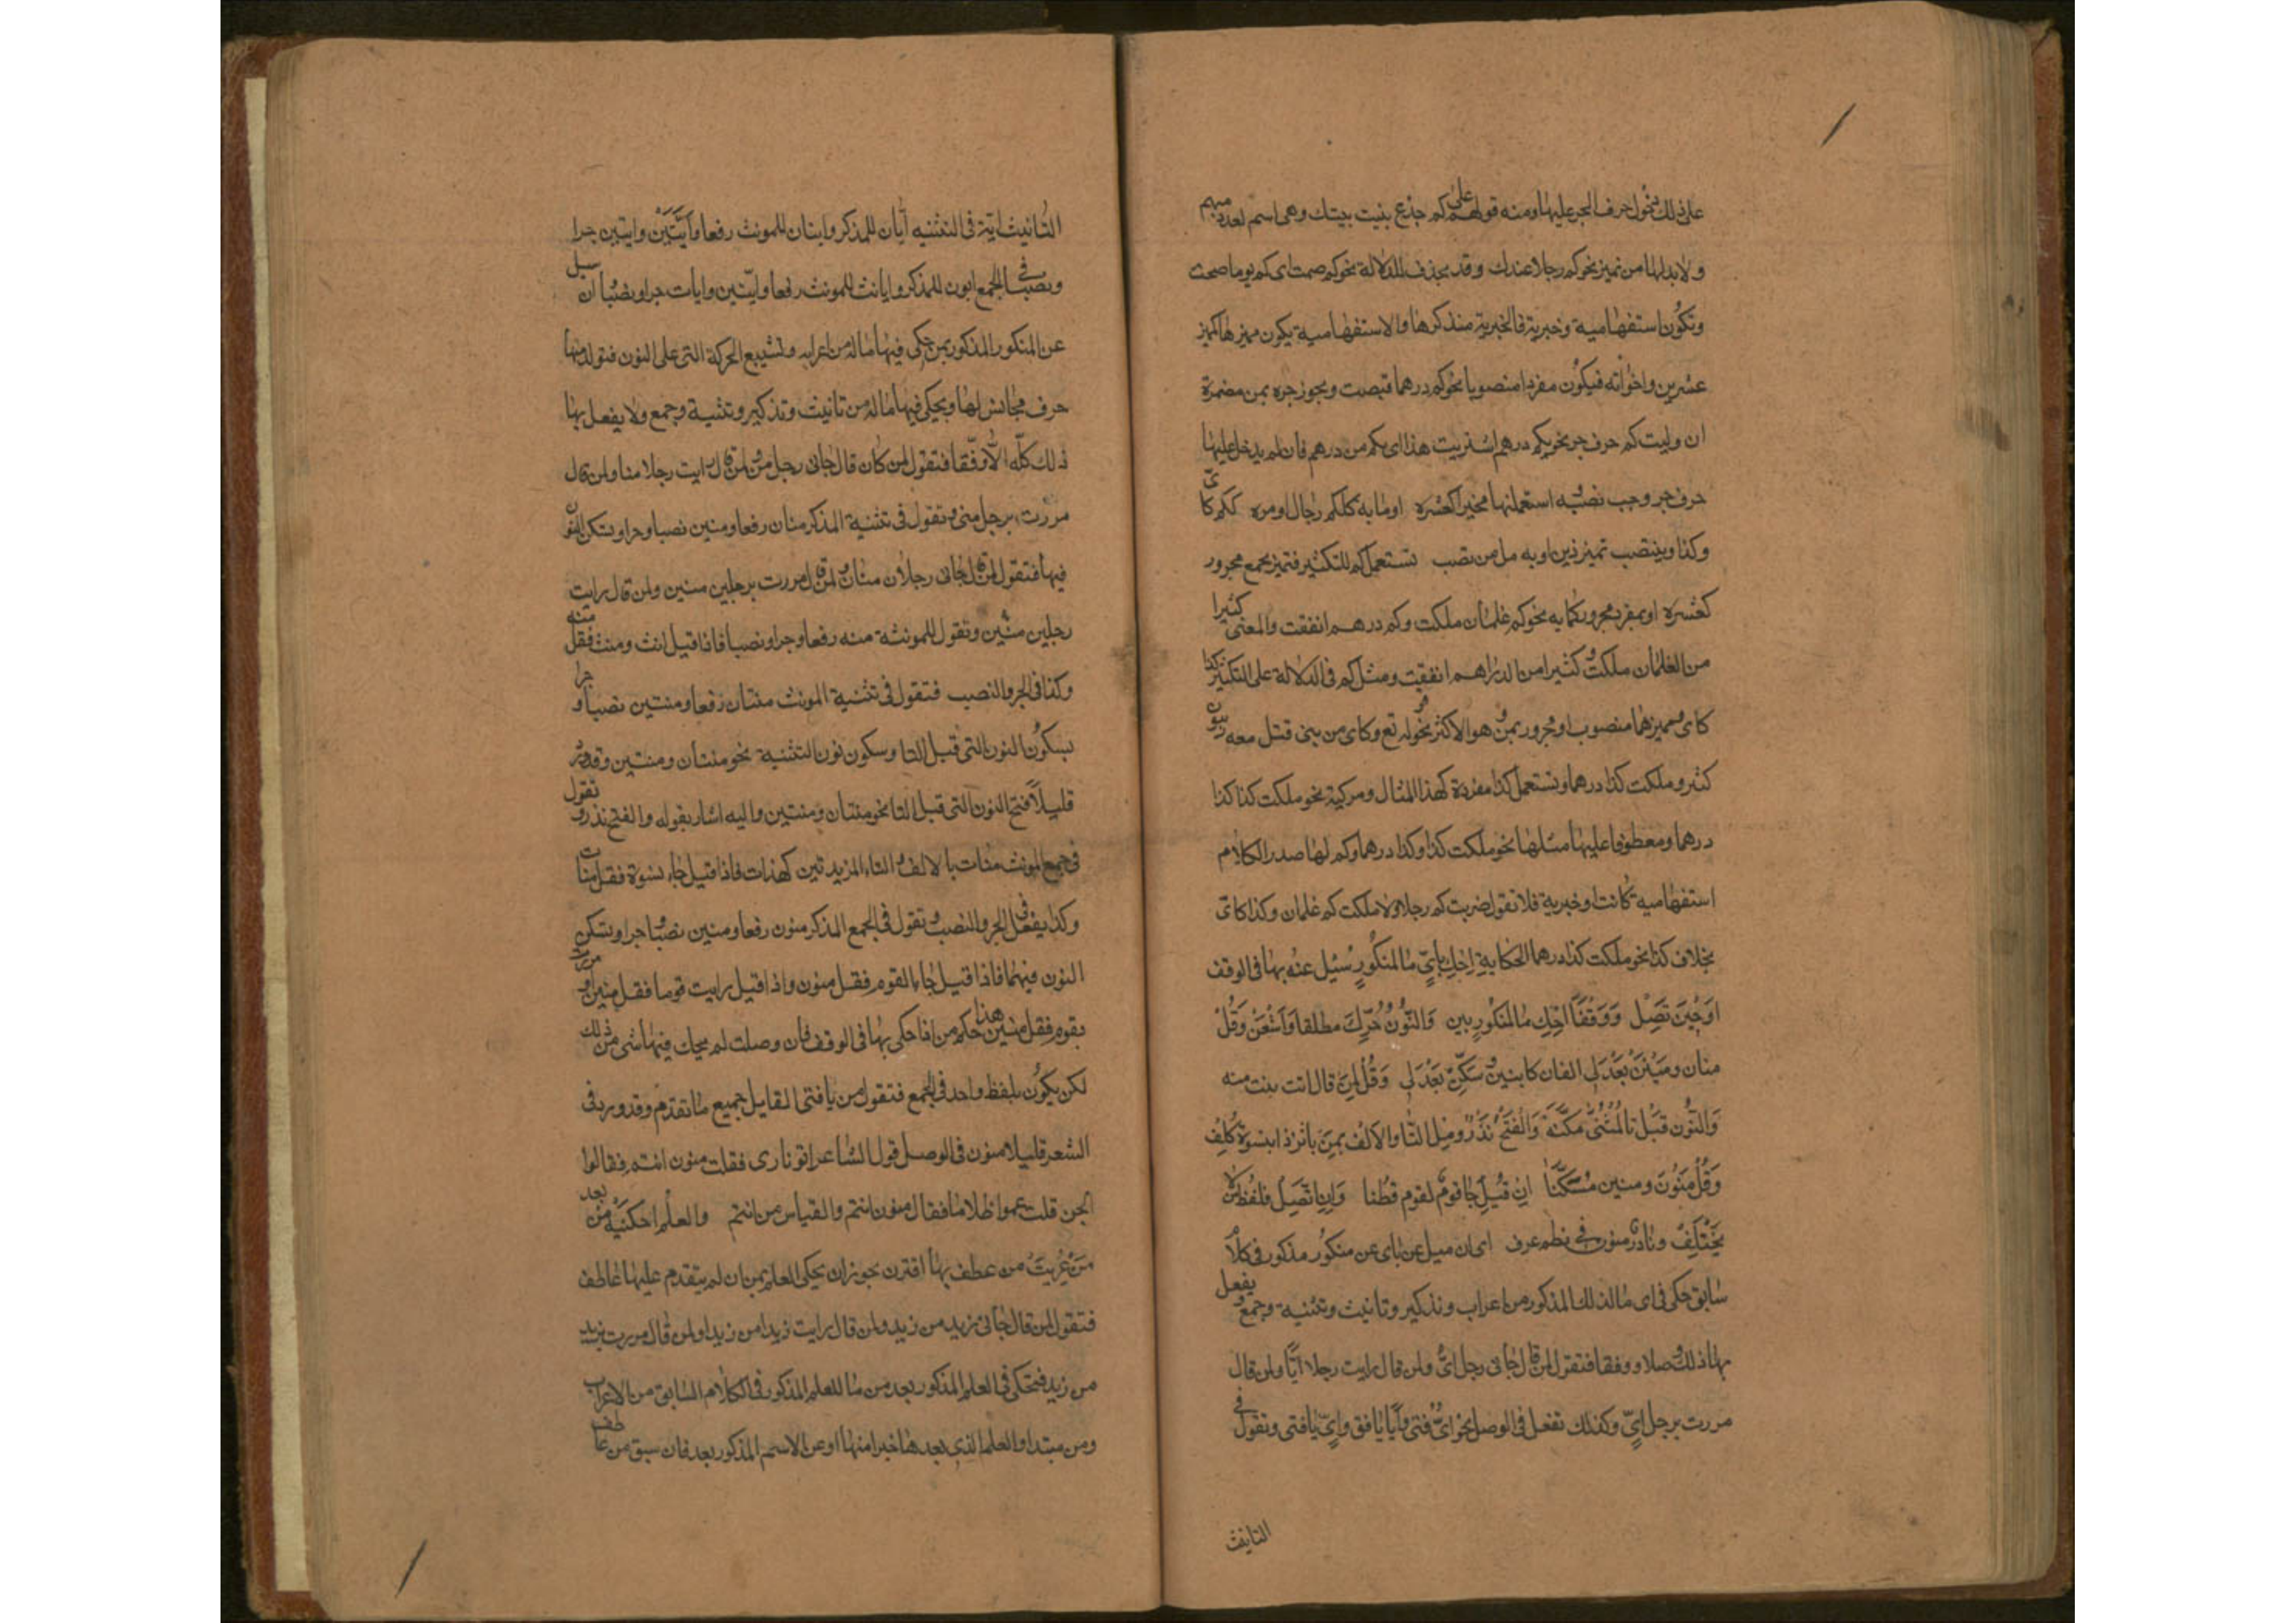 على ذلك دخول حرف الجر عليها ومنه قولهم على كم جذع بنيت بيتك وهى اسم لعدد مبهم
ولا بد لها من تميز نحو كم رجلا عندك وقد يحذف للدلالة نحو كم صمت اى كم يوما صمت
وتكون استفهامية وخبرية فالخبرية سنذكرها والاستفهامية يكون مميزها كمميز
عشرين واخواته فيكون مفردا منصوبا نحو كم درهما قبضت ويجوز جره بمن مضمرة
ان وليت كم حرف جر نحو بكم درهم اشتريت هذا اى بكم من درهم فان لم يدخل عليها
حرف جر وجب نصبه استعملنها مخبرا كعشره او مايه ككم رجال او مره ككم كاىّ
وكذا وينتصب تميز ذين او به صل من تصب تستعمل كم للتكثير فتميز بجمع مجرور
كعشرة او بمفرد مجرور كمايه نحو كم غلمان ملكت وكم درهم انفقت والمعنى كثيرا
من الغلمان ملكت وكثيرا من الدراهم انفقت ومثل كم فى الدلالة على التكثير كذا
كاى ومميزهما منصوب او مجرور بمن وهو الاكثر نحو قوله تع وكاى من نبى قتل معه ربيون
كثير وملكت كذا درهما وتستعمل كذا مفردة كهذا المثال ومركبة نحو ملكت كذا كذا
درهما ومعطوفا عليها مثلها نحو ملكت كذا وكذا درهما وكم لها صدر الكلام
استفهامية كانت او خبرية فلا تقول ضربت كم رجلا ولا ملكت كم غلمان وكذا كاىّ
بخلاف كذا نحو ملكت كذا درهما الحكاية اِحْكِ بِاَىٍّ مَا لمنكُورٍ سُئِل عنْهُ بها فى الوقف
اوحِيْنَ تَصِل وَوَقْفًا احْكِ مَا لمنكورٍ بمن وَالنّونَ حَرِّكْ مطلقا وَاَشْبِعَنْ وَقُلْ
منان ومَنَيْنِ بَعْدَ لى الفان كابنين وسَكِّنْ تعْدِلِ وَقُلْ لمن قال اتت بنت منه
وَالنّون قبْل تا المُثنّى مسَكَّنَة وَالْفَتْحُ نَذْرٌ وصِل التا والالف بمن باثر ذا بنسوة كلف
وَقُلْ مَنُونَ ومنين مُسْكِنًا اِنْ قيل جا قومٌ لقوم فطنا وَاِن تصِل فلفظ من لا
يَخْتَلِفُ ونادرٌ منون فى نظم عرف اى ان سيل عن باى عن منكور مذكور فى كلام
سابق حكى فى اى ما لذلك المذكور من اعراب وتذكير وتانيث وتثنية وجمع ويفعل
بها ذلك وصلا ووقفا فتقول لمن قال جانى رجل اىٌّ ولمن قال رايت رجلا ايًّا ولمن قال
مررت برجل اىٍّ وكذلك تفعل فى الوصل نحو اىٌّ يا فتى وايًّا يا فتى واىٍّ يا فتى وتقول فى
التانيث
التانيث اية فى التثنيه ايان للمذكر وايتان للمونث رفعا وايَّيْن وايتين جرا
ونصبا وفى الجمع ايون للمذكر وايات للمونث رفعا وايّين وايات جرا ونصبا ان سيل
عن المنكور المذكور بمن حكى فيها ما له من اعراب وتشبع الحركة التى على النون فتولد منها
حرف مجانس لها ويحكى فيها ما له من تانيث وتذكير وتثنية وجمع ولا يفعل بها
ذلك كله الا وقفا فتقول لمن قال جانى رجل منو ولمن قال رايت رجلا منا ولمن قال
مررت برجل منى وتقول فى تثنية المذكر منان رفعا ومنين نصبا وجرا وتسكن النون
فيها فتقول لمن قال جانى رجلان منان ولمن قال مررت برجلين منين ولمن قال رايت
رجلين منين وتقول للمونثة منه رفعا وجرا ونصبا فاذا قيل انث ومنث فقل منه
وكذا فى الجر والنصب فتقول فى تثنية المونث منتان رفعا ومنتين نصبا وجرا
بسكون النون التى قبل التا وسكون نون التثنية نحو منتان ومنتين وقد ورد
قليلا فتح النون التى قبل التا نحو منتان ومنتين واليه اشار بقوله والفتح نذر وتقول
فى جمع المونث منات بالالف والتاء المزيدتين كهندات فاذا قيل جاء نسوة فقل منات
وكذا يفعل فى الجر والنصب وتقول فى الجمع المذكر منون رفعا ومنين نصبا وجرا وتسكن
النون فيهما فاذا قيل جاء القوم فقل منون واذا قيل رايت قوما فقل منين او مررت
بقوم فقل منين هذا حكم من اذا حكى بها فى الوقف فان وصلت لم يحك فيها شى من ذلك
لكن يكون بلفظ واحد فى الجمع فتقول من يا فتى القايل جميع ما تقدم وقد ورد فى
الشعر قليلا منون فى الوصل قول الشاعر اتوا نارى فقلت منون انتم فقالوا
الجن قلت عموا ظلاما فقال منون انتم والقياس من انتم والعلم احكينه من بعد
مَن عُرِيَت من عطف بها اقترن يجوز ان يحكى العلم بمن ان لم يتقدم عليها عاطف
فتقول لمن قال جانى زيد من زيد ولمن قال رايت زيدا من زيدا ولمن قال مررت بزيد
من زيد فتحكى فى العلم المذكور بعد من ما للعلم المذكور فى الكلام السابق من الاعراب
ومن مبتدا والعلم الذى بعدها خبرا منها او عن الاسم المذكور بعد فان سبق من عاطف